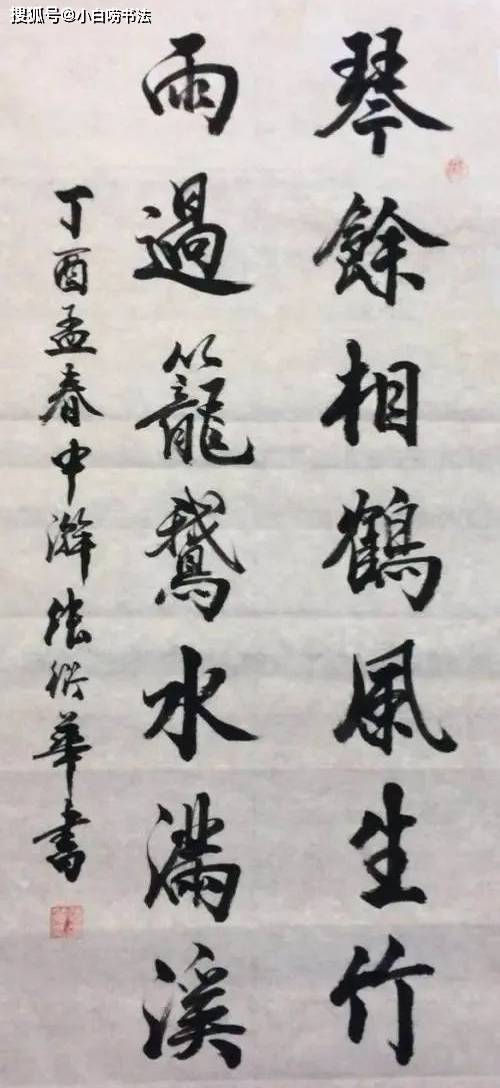 搜狐号@小白唠书法
琴餘相鶴風生竹
雨過籠鵝水滿溪
丁酉孟春中澣張俗華書